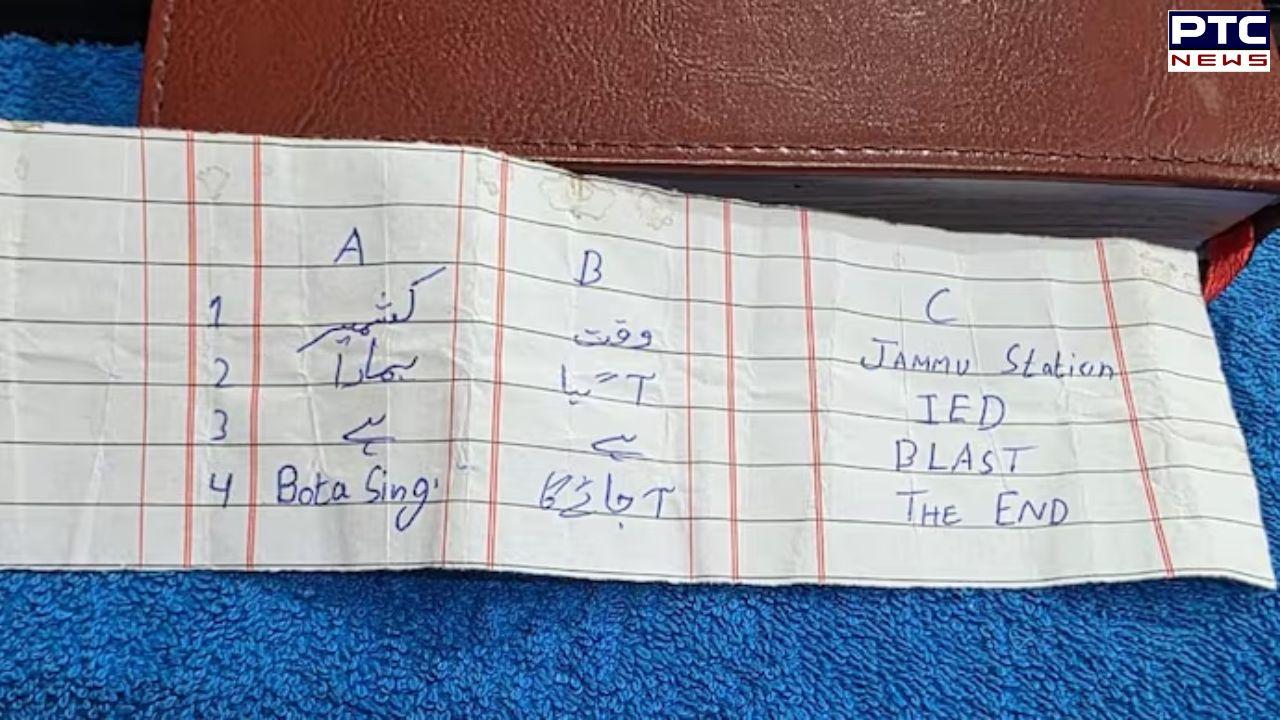 PTC
NEWS
A B C
1 کشمیر وقت JAMMU Station
2 ہمارا آگیا IED
3 ہے ہے BLAST
4 Bota Sing. آ جائے گا THE END